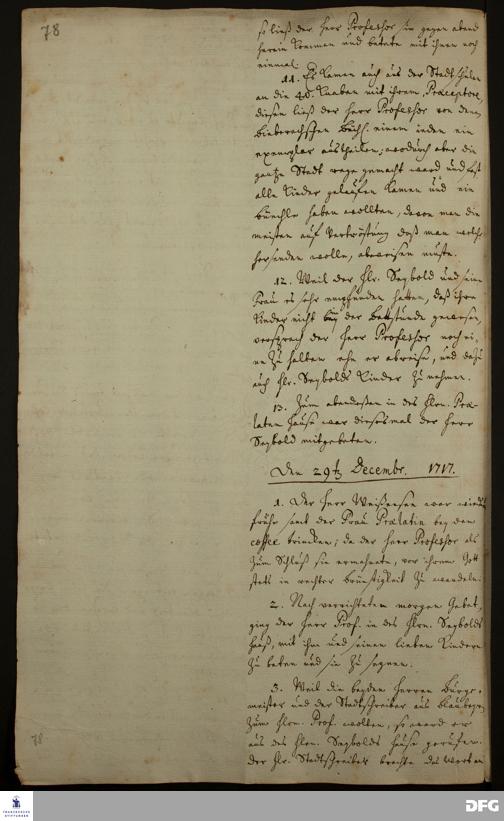 78
so ließ der Herr Professor sie gegen abend
herein kommen und betete mit ihnen noch
einmal.
11. Es kamen auch aus der Stadt Schulen
an die 40. Knaben mit ihrem Præceptore,
diesen ließ der Herr Professor von dem
Biberachschen Büchl. einem jeden ein
exemplar austheilen; wodurch aber die
gantze Stadt rege gemacht ward und fast
alle Kinder gelaufen kamen und ein
büchle haben wollten, davon man die
meisten auf Vertröstung daß man welche
hersenden wolle, abweisen muste.
12. Weil der Hr. Seybold und seine
Frau es sehr empfunden hatten, daß ihre
Kinder nicht bey der Bettstunde gewesen,
versprach der Herr Professor noch ei-
ne zu halten ehe er abreise, und dazu
auch Hr. Seybolds Kinder zu nehmen.
13. Zum abendeßen in des Hrn. Præ-
laten Hause war diesesmal der Herr
Seybold mitgebeten.
Den 29ten Decembr. 1717.
1. Der Herr Weißensee war wieder
frühe samt der Frau Prælatin bey dem
coffee trincken; da der Herr Professor als
zum Schluß sie ermahnete, vor ihrem Gott
stets in rechter brünstigkeit zu wandeln.
2. Nach verrichtetem morgen Gebet,
ging der Herr Prof. in des Hrn. Seybolds
Hauß, mit ihm und seinen lieben Kindern
zu beten und sie zu segnen.
3. Weil die beyden Herren Bürge-
meister und der Stadtschreiber aus Blaubeyren
zum Hrn. Prof. wollten, so ward er
aus des Hrn. Seybolds Hause gerufen.
Der Hr. Stadtschreiber brachte das Wort an
78
FRANCKESCHE
STIFTUNGEN
DFG